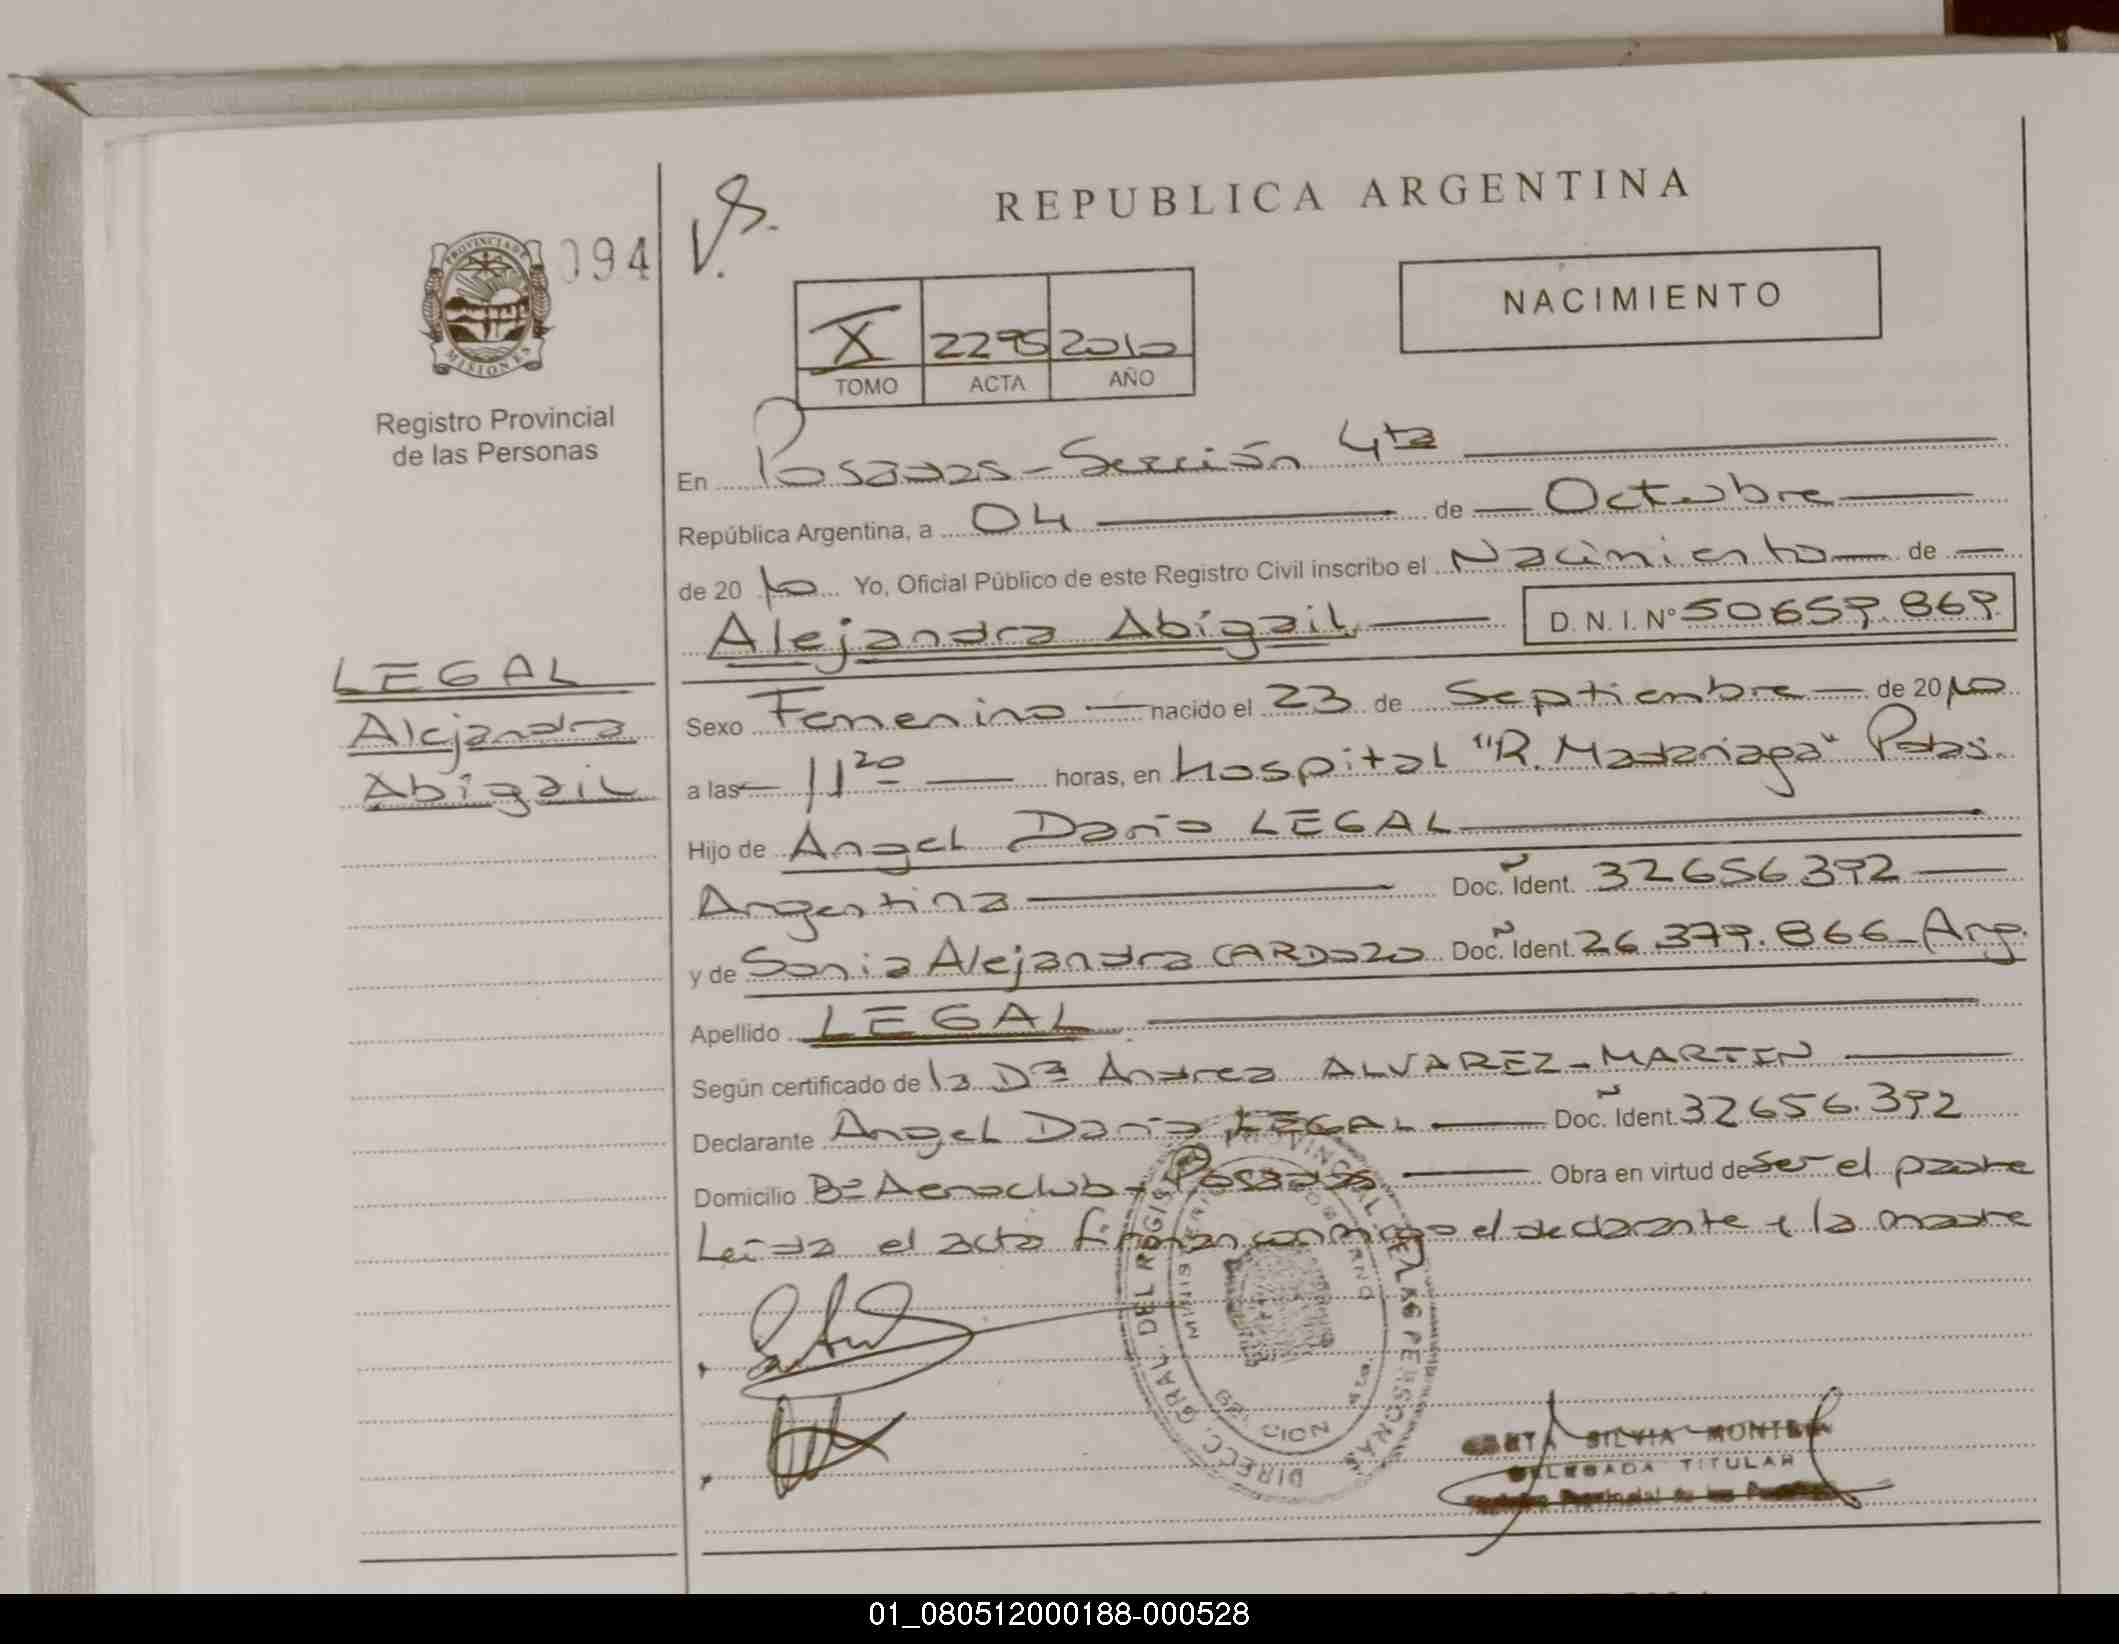 REPUBLICA ARGENTINA
094
Vs.
PROVINCIA DE MISIONES
Registro Provincial
de las Personas
NACIMIENTO
X 2295 2010
TOMO ACTA AÑO
En Posadas - Sección 4ta
República Argentina, a 04 de Octubre
de 2010 Yo, Oficial Público de este Registro Civil inscribo el Nacimiento de
Alejandra Abigail D. N. I. Nº 50659.869
LEGAL
Alejandra
Abigail
Sexo Femenino nacido el 23 de Septiembre de 2010
a las 11 20 horas, en hospital "R. Madariaga" Pdas.
Hijo de Angel Dario LEGAL
Argentina Doc. Ident. 32656392
y de Sonia Alejandra CARDOZO Doc. Ident. 26.379.866 - Arg.
Apellido LEGAL
Según certificado de la Dra Andrea ALVAREZ - MARTIN
Declarante Angel Dario LEGAL Doc. Ident. 32656.392
Domicilio Bº Aeroclub - Posadas Obra en virtud de ser el padre
Leida el acta firman conmigo el declarante y la madre
DIREC. GRAL. DEL REGIS PROVINCIAL DE LAS PERSONAS
MINISTERIO GOBIERNO
SILVIA
DELEGADA TITULAR
Provincial de las
01_080512000188-000528